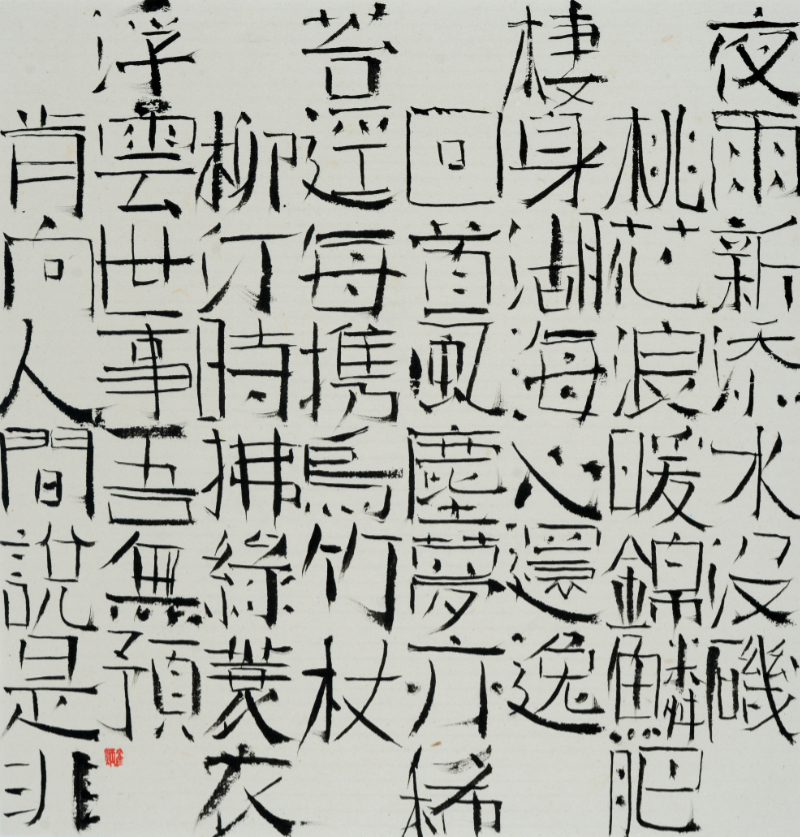 夜雨新添水没磯
桃花浪暖錦鱗肥
棲身湖海心還逸
回首風塵夢亦稀
苔逕每携烏竹杖
柳汀時拂綠蓑衣
浮雲世事吾無預
肯向人間說是非